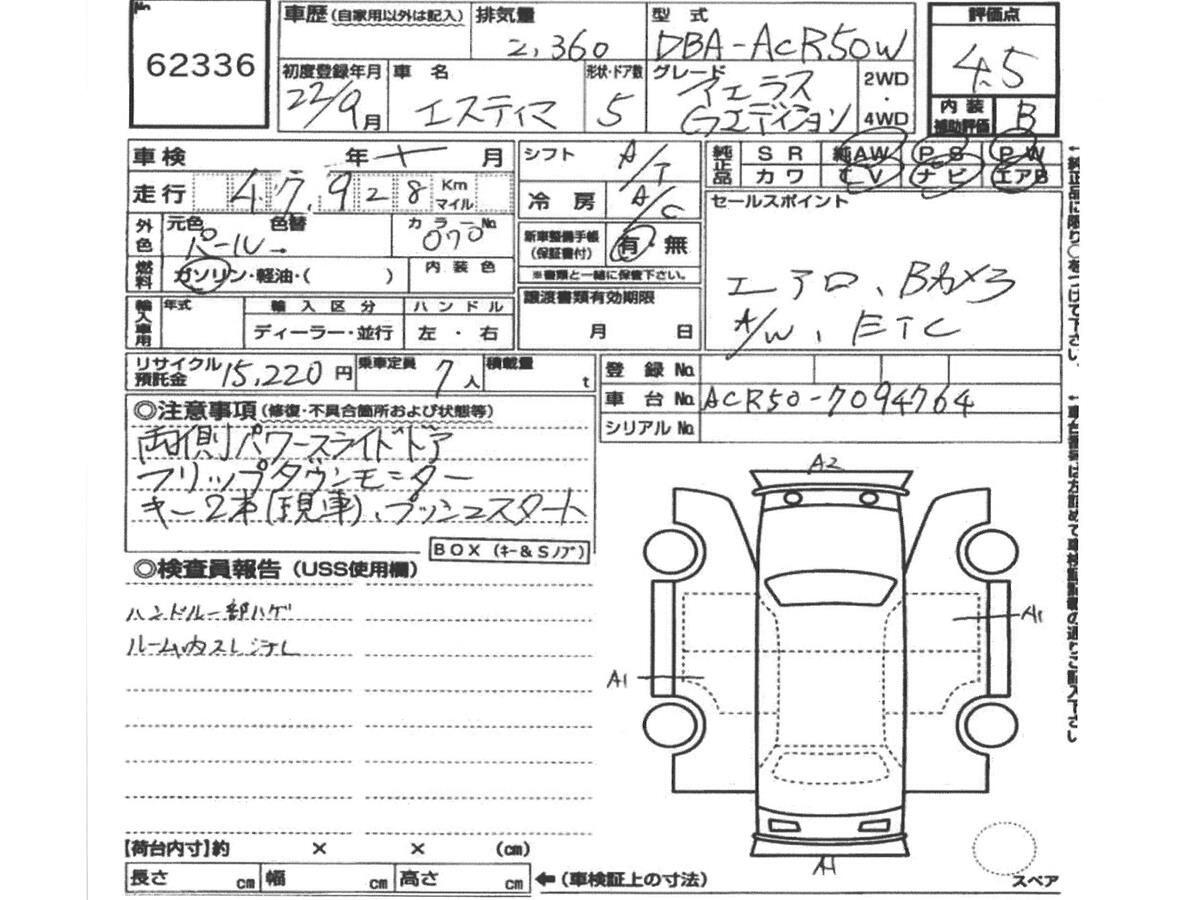 No.
62336
車歴 (自家用以外は記入)
排気量
2,360
型式
DBA-ACR50W
評価点
4.5
初度登録年月
22/9月
車名
エスティマ
形状・ドア数
5
グレード
アエラス
Gエディション
2WD
・
4WD
内装
補助評価
B
車検 年 月
走行 47,928 Km
マイル
シフト
A/T
冷房
A/C
純正品
SR 純AW PS PW
カワ TV ナビ エアB
外色
元色 色替
パール→
カラーNo.
070
新車整備手帳
(保証書付)
有・無
※書類と一緒に保管下さい。
セールスポイント
エアロ、Bカメラ
A/W、ETC
燃料
ガソリン・軽油・( )
内装色
輸入車用
年式
輸入区分
ハンドル
ディーラー・並行
左・右
譲渡書類有効期限
月 日
リサイクル
預託金
15,220円
乗車定員
7人
積載量
t
登録No.
車台No. ACR50-7094764
シリアルNo.
◎注意事項 (修復・不具合箇所および状態等)
両側パワースライドドア
フリップダウンモニター
キー2本(現車)、プッシュスタート
BOX (キー&Sノブ)
◎検査員報告 (USS使用欄)
ハンドル一部ハゲ
ルーム内スレ汚レ
A2
A1
A1
A1
スペア
【荷台内寸】約 × × (cm)
長さ cm 幅 cm 高さ cm
←(車検証上の寸法)
↑純正品に限り○をつけて下さい。
↑車台番号は方詰めで車検証記載の通りご記入下さい